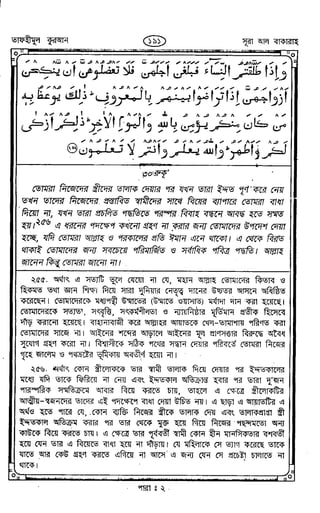 তাফহীমুল কুরআন
১৯১
সূরা আল বাকারাহ
وَإِذَا طَلَّقْتُمُ النِّسَاءَ فَبَلَغْنَ أَجَلَهُنَّ فَلَا تَعْضُلُوهُنَّ أَنْ يَنْكِحْنَ
أَزْوَاجَهُنَّ إِذَا تَرَاضَوْا بَيْنَهُمْ بِالْمَعْرُوفِ ذَٰلِكَ يُوعَظُ بِهِ
مَنْ كَانَ مِنْكُمْ يُؤْمِنُ بِاللَّهِ وَالْيَوْمِ الْآخِرِ ذَٰلِكُمْ أَزْكَىٰ
لَكُمْ وَأَطْهَرُ وَاللَّهُ يَعْلَمُ وَأَنْتُمْ لَا تَعْلَمُونَ
৩০ রুকূ'
তোমরা নিজেদের স্ত্রীদের তালাক দেয়ার পর যখন তারা ইদ্দত পূর্ণ করে নেয়
তখন তাদের নিজেদের প্রস্তাবিত স্বামীদের সাথে বিয়ের ব্যাপারে তোমরা বাধা
দিয়ো না, যখন তারা প্রচলিত পদ্ধতিতে পরস্পর বিবাহ বন্ধনে আবদ্ধ হতে সম্মত
হয়। এ ধরনের পদক্ষেপ কখনো গ্রহণ না করার জন্য তোমাদের উপদেশ দেয়া
হচ্ছে, যদি তোমরা আল্লাহ ও পরকালের প্রতি ঈমান এনে থাকো। এ থেকে বিরত
থাকাই তোমাদের জন্য সবচেয়ে পরিমার্জিত ও সর্বাধিক পবিত্র পদ্ধতি। আল্লাহ
জানেন কিন্তু তোমরা জানো না।
২৫৫. অর্থাৎ এ সত্যটি ভুলে যেয়ো না যে, মহান আল্লাহ তোমাদের কিতাব ও
হিকমত তথা জ্ঞান শিক্ষা দিয়ে সারা দুনিয়ার নেতৃত্ব দানের উচ্চতর আসনে অধিষ্ঠিত
করেছেন। তোমাদেরকে মধ্যপন্থী উম্মাতের (উম্মাতে ওয়াসাত) মর্যাদা দান করা হয়েছে।
তোমাদেরকে সত্যতা, সৎবৃত্তি, সৎকর্মশীলতা ও ন্যায়নিষ্ঠার মূর্তিমান প্রতীক হিসেবে
দাঁড় করানো হয়েছে। বাহানাবাজী করে আল্লাহর আয়াতকে খেল-তামাশায় পরিণত করা
তোমাদের সাজে না। আইনের শব্দের আড়ালে আইনের মূল প্রাণসত্তার বিরুদ্ধে অবৈধ
সুযোগ গ্রহণ করো না। বিশ্বাসীকে সঠিক পথের সন্ধান দেবার পরিবর্তে তোমরা নিজের
গৃহে জালেম ও পথভ্রষ্টের ভূমিকায় অবতীর্ণ হয়ো না।
২৫৬. অর্থাৎ কোন স্ত্রীলোককে তার স্বামী তালাক দিয়ে দেয়ার পর ইদ্দতকালের
মধ্যে যদি তাকে ফিরিয়ে না নেয় এবং ইদ্দতকাল অতিক্রান্ত হবার পর তারা দু'জন
পারস্পরিক সম্মতিক্রমে আবার বিয়ে করতে চায়, তাহলে এ ক্ষেত্রে স্ত্রীলোকটির
আত্মীয়-স্বজনদের তাদের এই পদক্ষেপে বাধা দেয়া উচিত নয়। এ ছাড়া এ আয়াতটির এ
অর্থও হতে পারে যে, কোন ব্যক্তি নিজের স্ত্রীকে তালাক দেয় এবং তালাকপ্রাপ্তা স্ত্রী
ইদ্দতকাল অতিক্রম করার পর তার থেকে মুক্ত হয়ে গিয়ে নিজের পছন্দমতো অন্য
কাউকে বিয়ে করতে চায়। এ ক্ষেত্রে তার পূর্ববর্তী স্বামী কোন হীন মানসিকতার বশবর্তী
হয়ে যেন তার এ বিয়েতে বাধা হয়ে না দাঁড়ায়। যে মহিলাকে সে ত্যাগ করেছে তাকে
যাতে আর কেউ গ্রহণ করতে এগিয়ে না আসে এ জন্য যেন সে প্রচেষ্টা চালাতে না
থাকে।
পারা ঃ ২